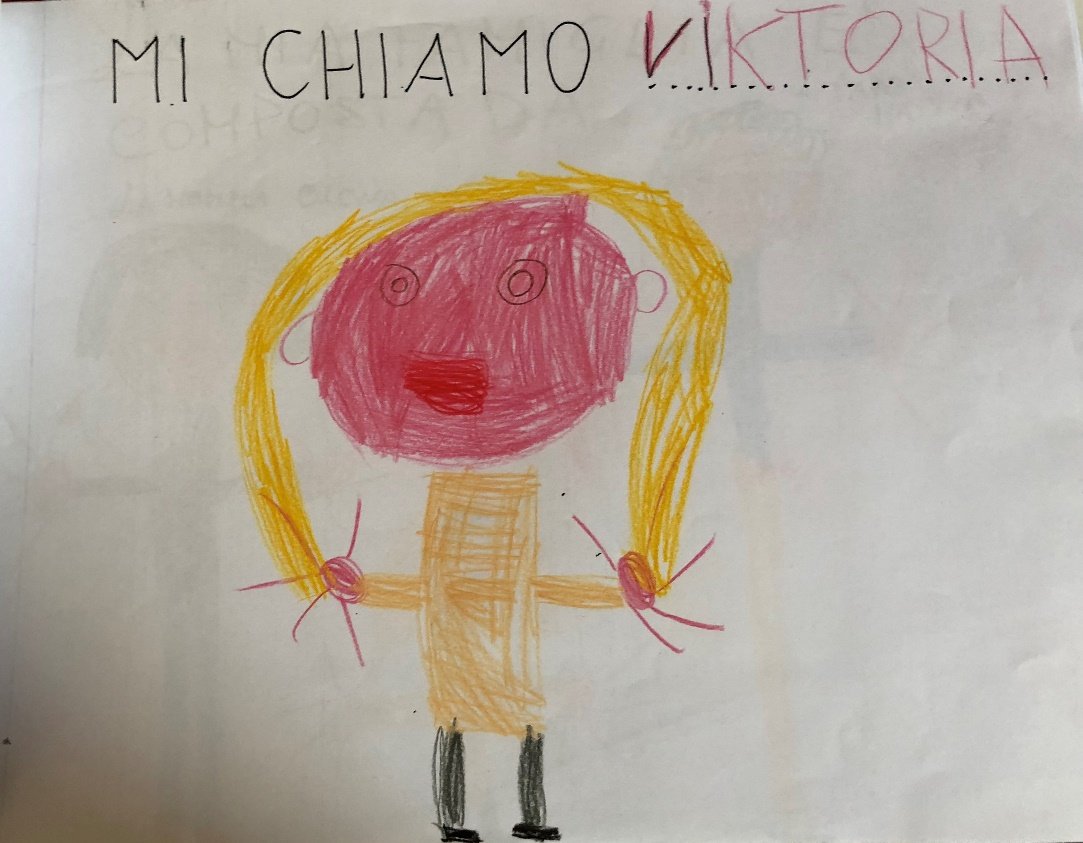 MI CHIAMO VIKTORIA